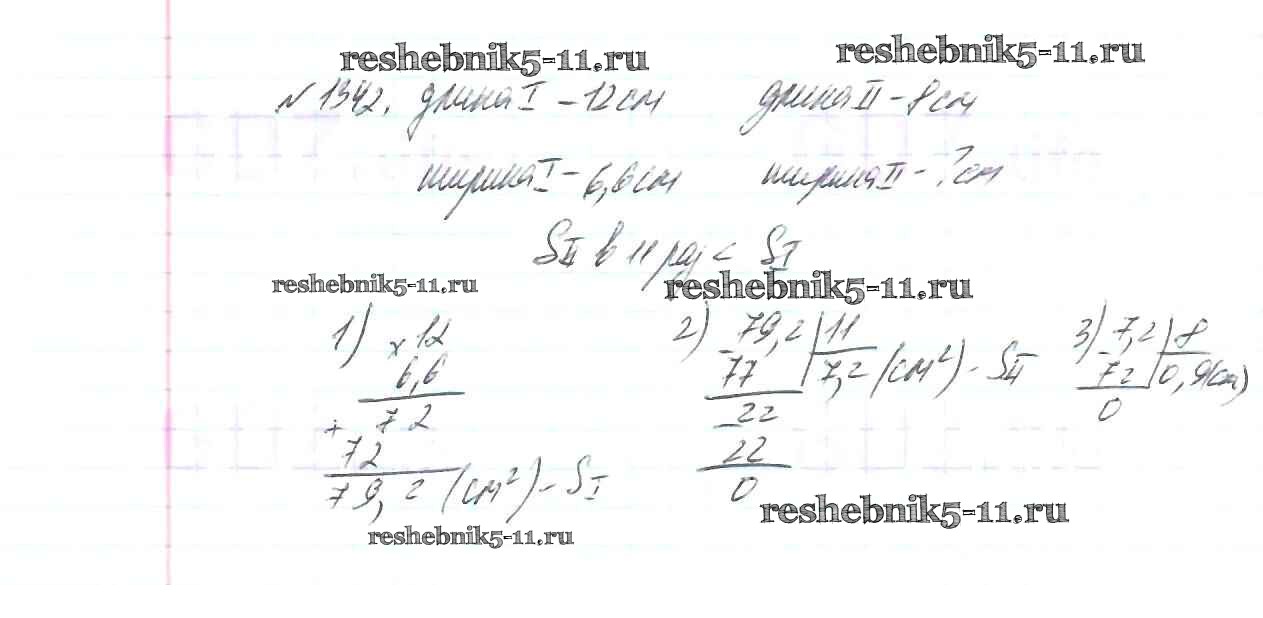 reshebnik5-11.ru reshebnik5-11.ru
№1342. длина I – 12 см длина II – 8 см
ширина I – 6,6 см ширина II – ? см
S II в 11 раз < S I
reshebnik5-11.ru reshebnik5-11.ru
1) × 12 2) – 79,2 | 11 3) – 7,2 | 8
6,6 77 7,2 (см²) – S II 72 0,9 (см)
+ 72 – 22 0
72 22
79,2 (см²) – S I 0
reshebnik5-11.ru
reshebnik5-11.ru